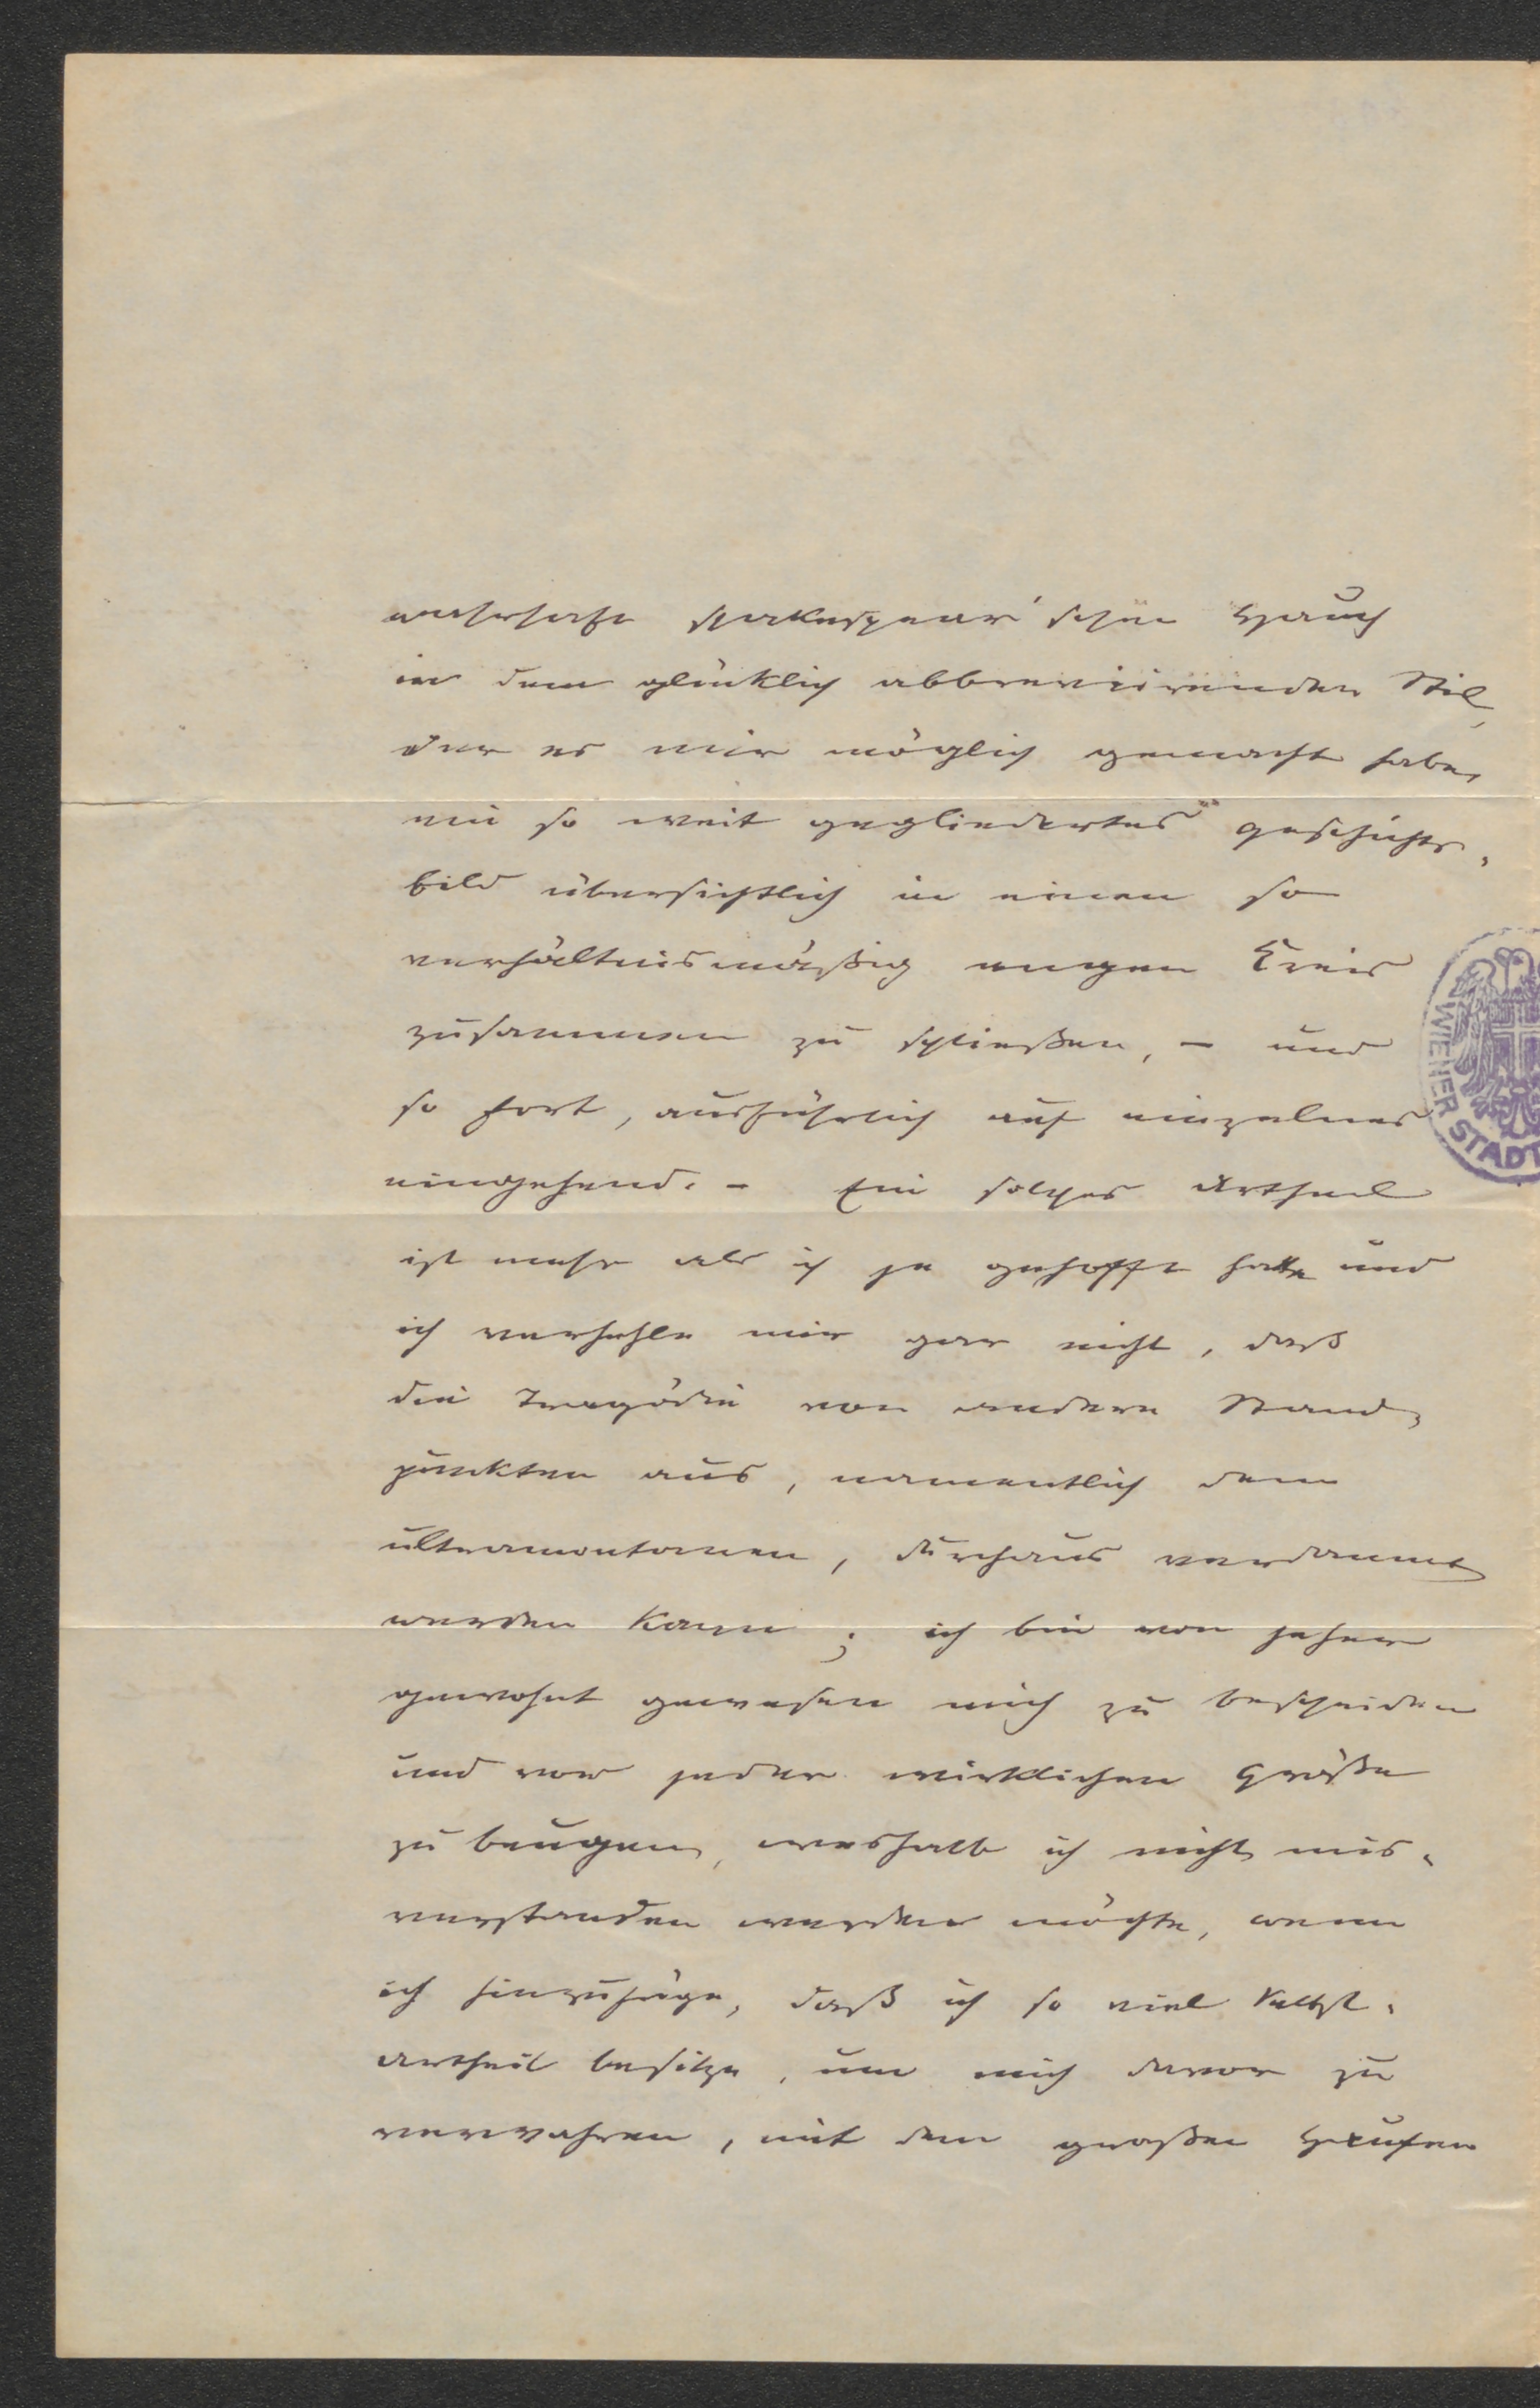 wahrhaft shakespear'schen Hauch
in dem glücklich abbreviirenden Stil,
der es mir möglich gemacht habe,
ein so weit gegliedertes Geschichts-
bild übersichtlich in einen so
verhältnismäßig engen Kreis
zusammen zu schließen, – und
so fort, ausführlich auf einzelnes
eingehend. – Ein solches Urtheil
ist mehr als ich je gehofft hatte und
ich verhehle mir gar nicht, daß
die Tragödie von andern Stand-
punkten aus, namentlich dem
ultramontanen, durchaus verdammt
werden kann; ich bin von jeher
gewohnt gewesen mich zu bescheiden
und vor jeder wirklichen Größe
zu beugen, weshalb ich nicht mis-
verstanden werden möchte, wenn
ich hinzufüge, daß ich so viel Selbst-
urtheil besitze, um mich davor zu
verwahren, mit dem großen Haufen
WIENER STADT